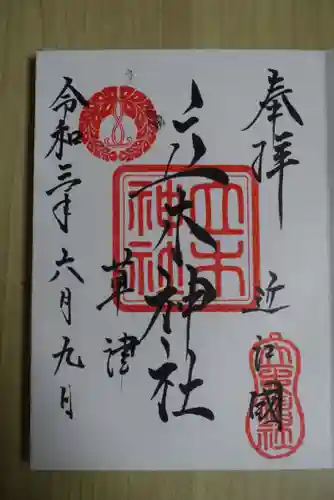 奉拝
近江國
立木神社
草津
令和三年六月九日
立木
神社